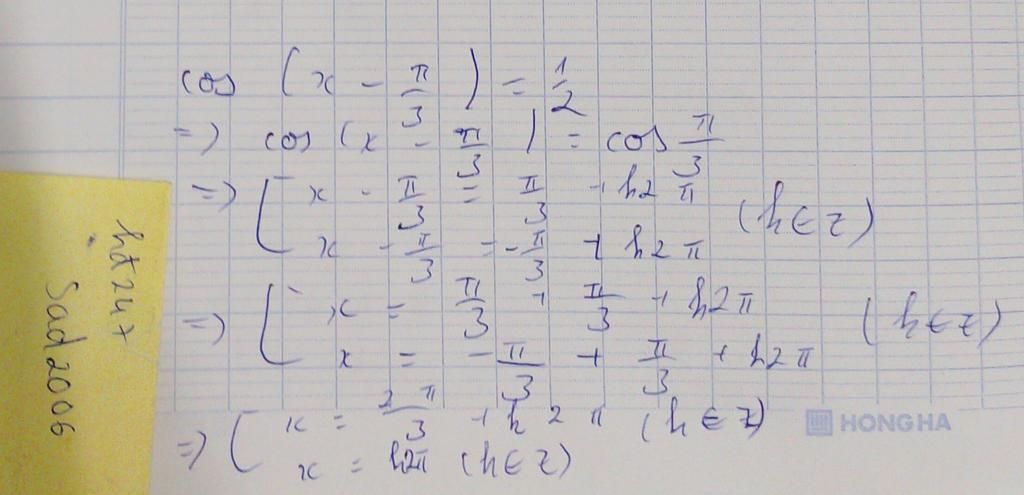 cos (x - π/3) = 1/2
=> cos (x - π/3) = cos π/3
=> [ x - π/3 = π/3 + k2π
x - π/3 = -π/3 + k2π (k ∈ Z)
=> [ x = π/3 + π/3 + k2π
x = -π/3 + π/3 + k2π (k ∈ Z)
=> [ x = 2π/3 + k2π (k ∈ Z)
x = k2π (k ∈ Z)
HONG HA
Sad2006